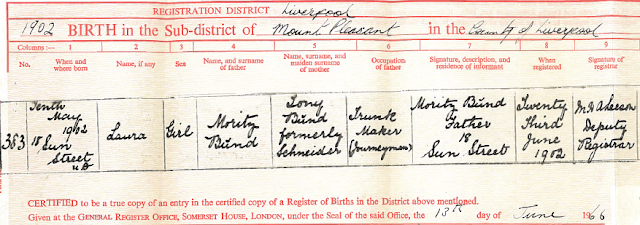 REGISTRATION DISTRICT Liverpool
1902 BIRTH in the Sub-district of Mount Pleasant in the County of Liverpool
Columns:— 1 2 3 4 5 6 7 8 9
No. When and where born Name, if any Sex Name, and surname of father Name, surname, and maiden surname of mother Occupation of father Signature, description, and residence of informant When registered Signature of registrar
383 Tenth May 1902 18 Sun Street Laura Girl Moritz Bund Tony Bund formerly Schneider Trunk Maker (Journeyman) Moritz Bund Father 18 Sun Street Twenty Third June 1902 Deputy Registrar
CERTIFIED to be a true copy of an entry in the certified copy of a Register of Births in the District above mentioned.
Given at the GENERAL REGISTER OFFICE, SOMERSET HOUSE, LONDON, under the Seal of the said Office, the 13th day of June 1966